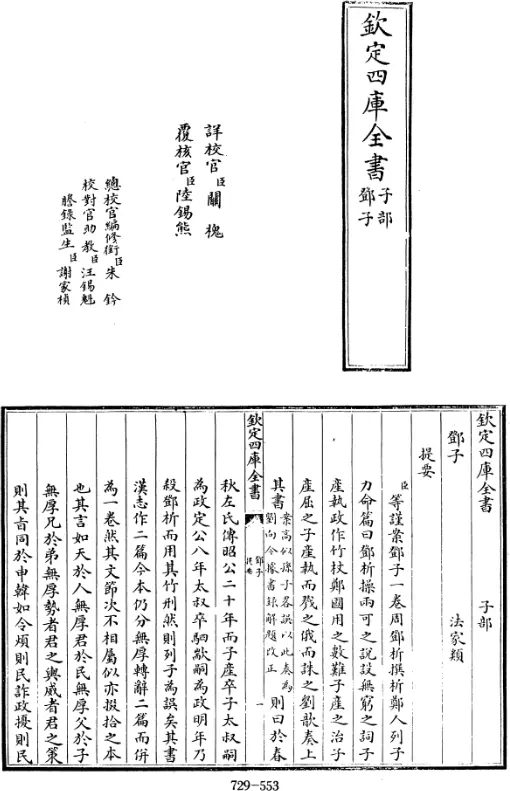 欽定四庫全書
子部
鄧子
詳校官臣關槐
覆核官臣陸錫熊
總校官編修銜臣朱鈐
校對官助教臣汪錫魁
謄錄監生臣謝家楨
欽定四庫全書
子部
鄧子
法家類
提要
臣等謹案鄧子一卷周鄧析撰析鄭人列子
力命篇曰鄧析操兩可之說設無窮之詞子
產執政作竹杖鄭國用之數難子產之治子
產屈之子產執而戮之俄而誅之劉歆奏上
其書案高似孫子畧誤以此奏為
劉向今據書錄解題改正
則曰於春
欽定四庫全書
鄧子
提要
一
秋左氏傳昭公二十年而子產卒子太叔嗣
為政定公八年太叔卒駟歂嗣為政明年乃
殺鄧析而用其竹刑然則列子為誤矣其書
漢志作二篇今本仍分無厚轉辭二篇而併
為一卷然其文節次不相屬似亦掇拾之本
也其言如天於人無厚君於民無厚父於子
無厚兄於弟無厚勢者君之輿威者君之策
則其㫖同於申韓如令煩則民詐政擾則民
729-553